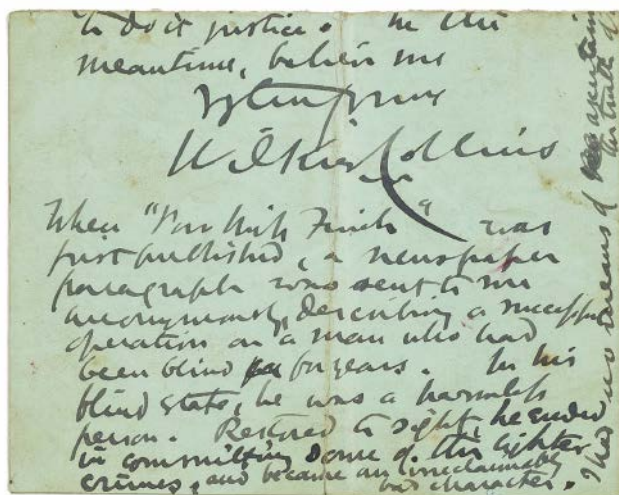 to do it justice. In the
meantime, believe me
Vy truly yours
Wilkie Collins
When "Poor Miss Finch" was
first published, a newspaper
paragraph was sent to me
anonymously, describing a successful
operation on a man who had
been blind for years. In his
blind state, he was a harmless
person. Restored to sight, he ended
in committing some of the lighter
crimes, and became an irreclaimably
bad character.
I had no means of ascertaining
the truth of